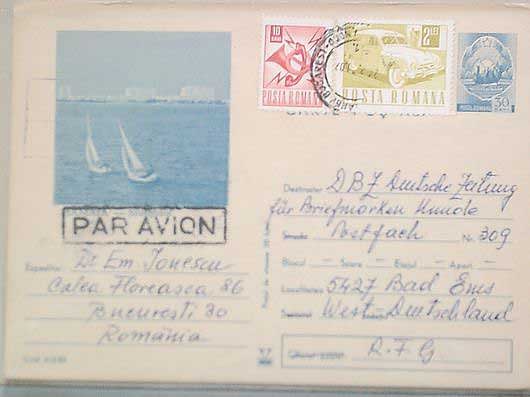 10
BANI
POSTA ROMANA
2 LEI
POSTA ROMANA
50
PAR AVION
Expeditor Dr Em Ionescu
Calea Floreasca 86
Bucuresti 30
Romania
Destinatar DBZ Deutsche Zeitung
für Briefmarken Kunde
Strada Postfach Nr. 309
Blocul - Scara - Etajul - Apart. -
Localitatea 5427 Bad Ems
West-Deutschland
R.F.G